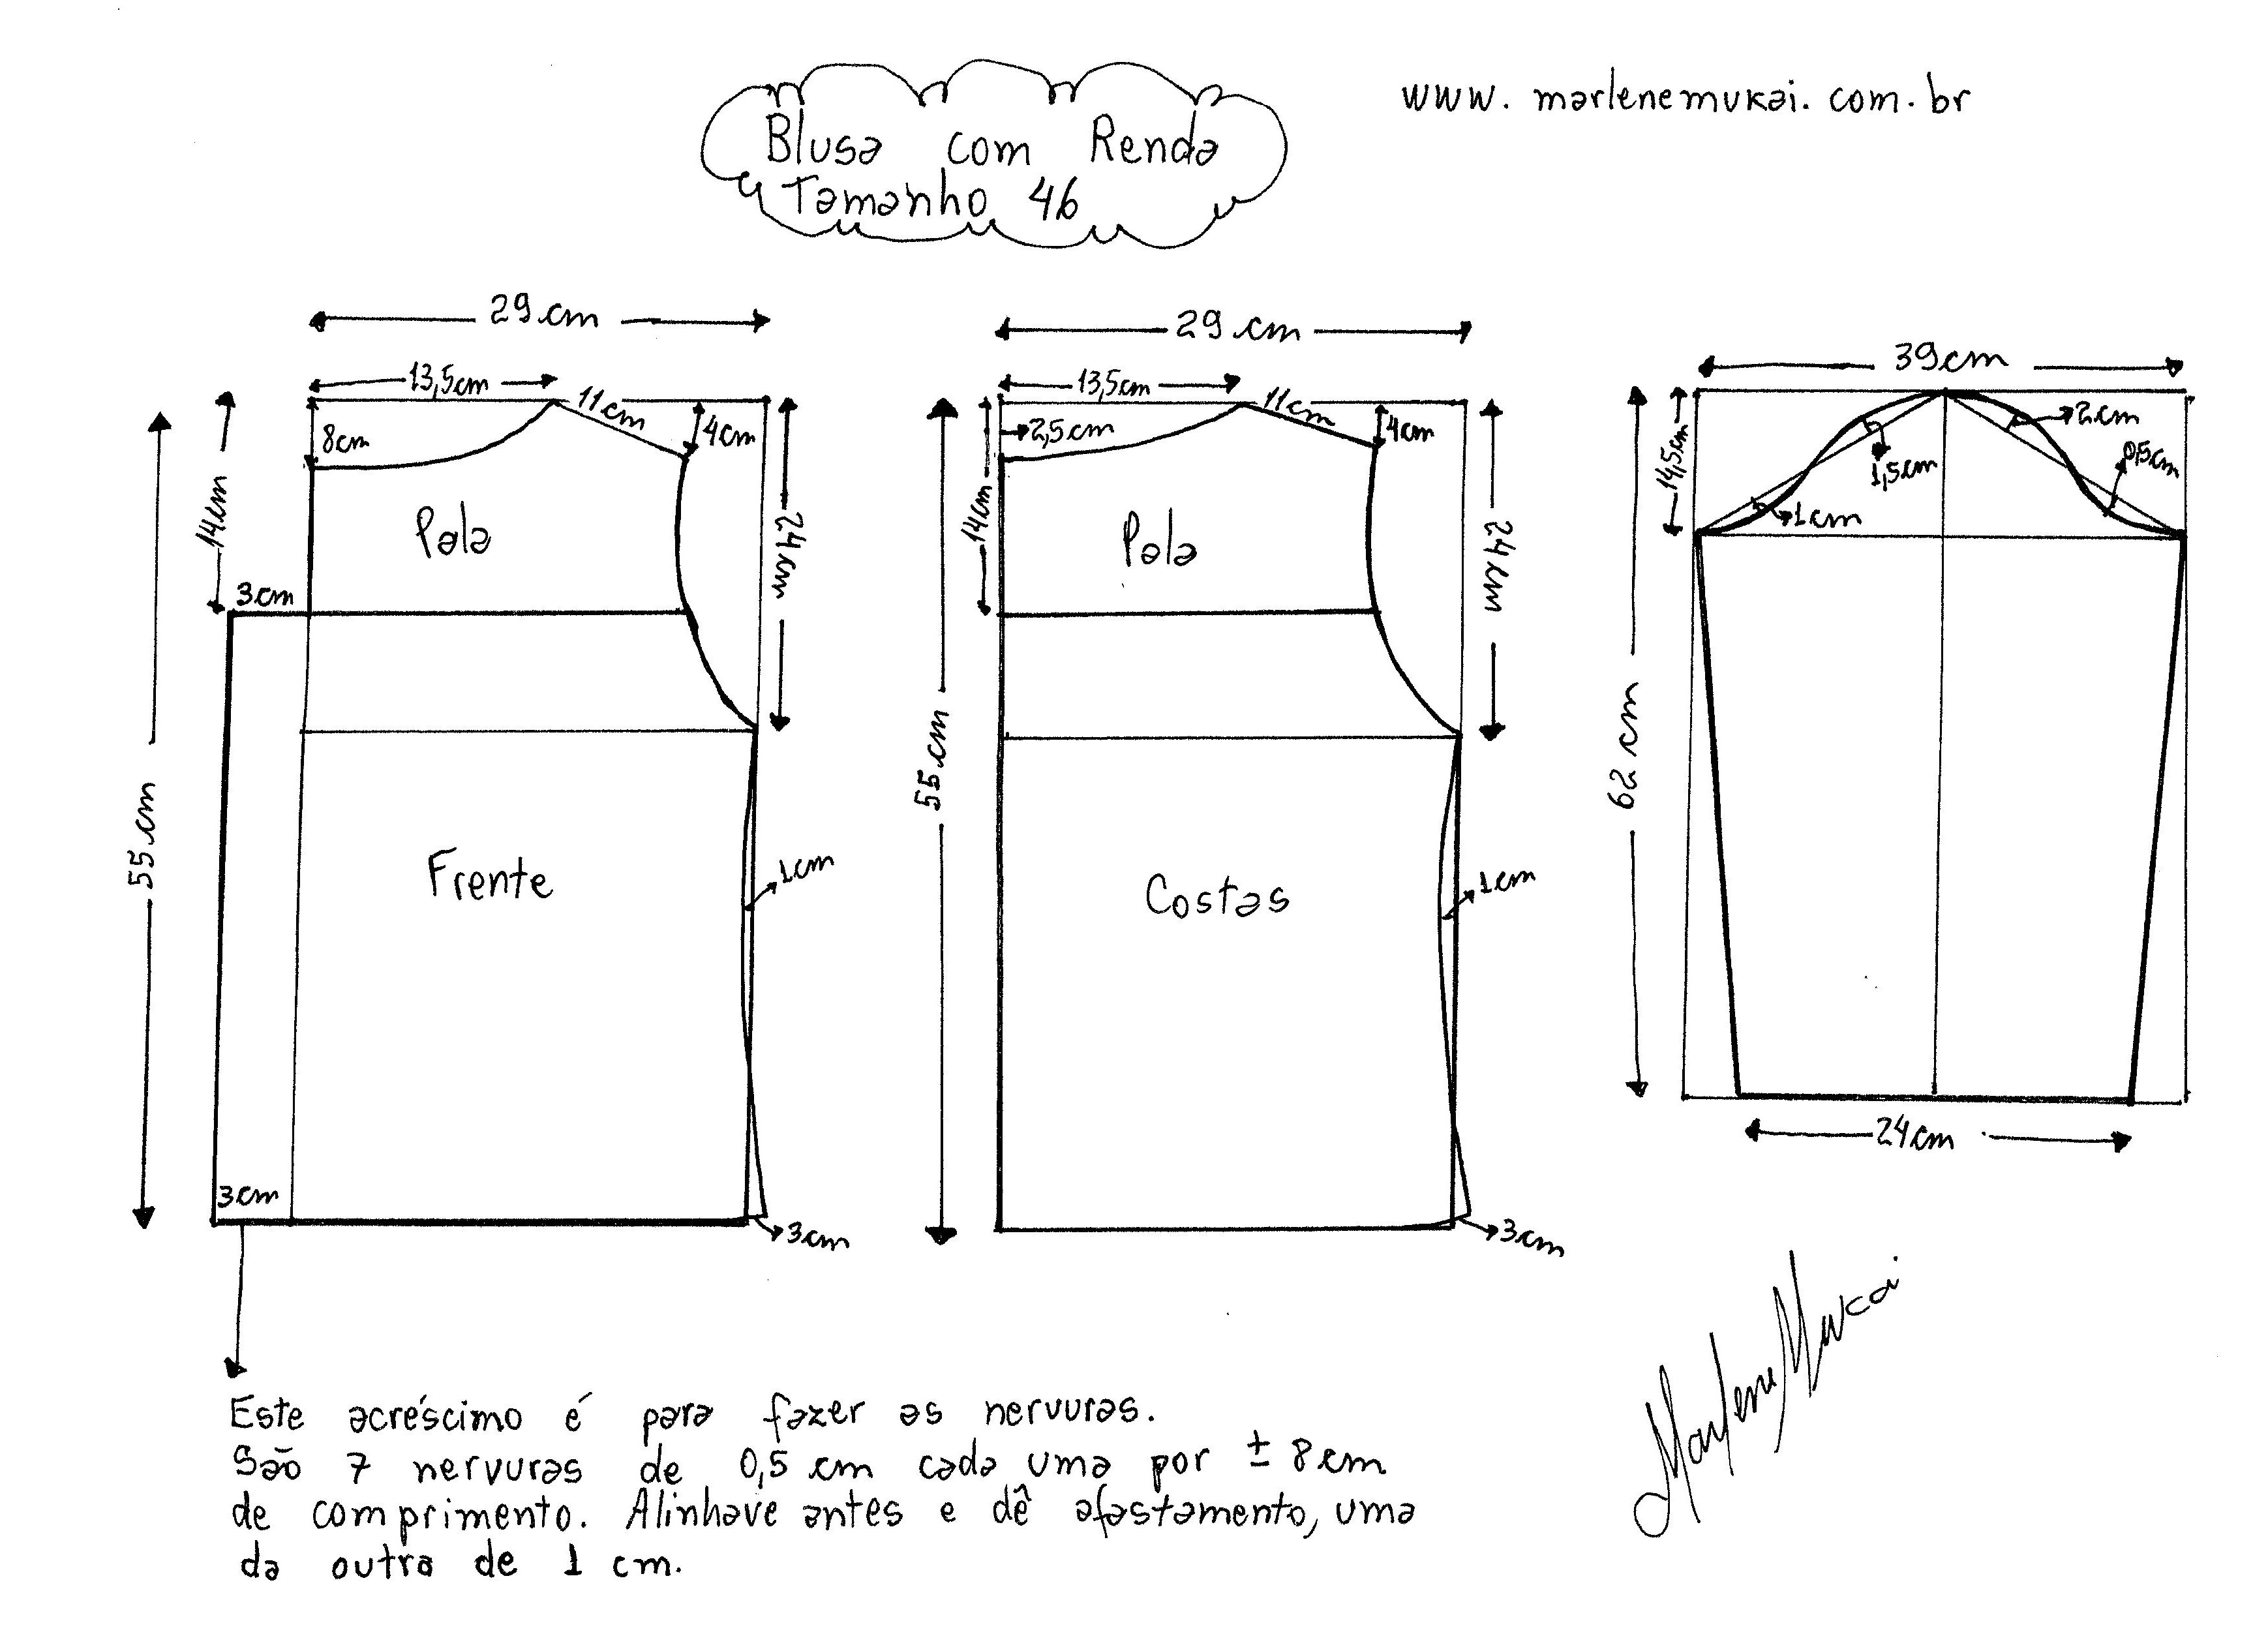 www.marlenemukai.com.br
Blusa com Renda
Tamanho 46
29cm
13,5cm
11cm
4cm
8cm
14cm
24cm
Pala
3cm
55cm
Frente
1cm
3cm
3cm
29cm
13,5cm
11cm
4cm
2,5cm
14cm
24cm
Pala
55cm
Costas
1cm
3cm
39cm
14,5cm
2cm
1,5cm
0,5cm
1cm
62cm
24cm
Este acréscimo é para fazer as nervuras.
São 7 nervuras de 0,5 cm cada uma por ± 8cm
de comprimento. Alinhave antes e dê afastamento, uma
da outra de 1 cm.
Marlene Mukai